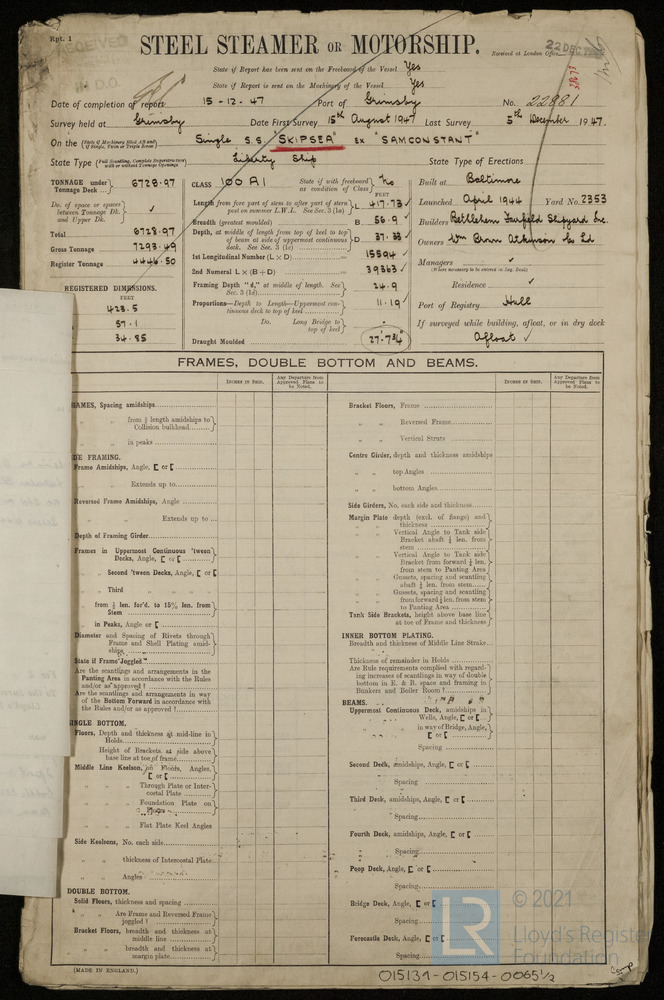 Rpt. 1
STEEL STEAMER OR MOTORSHIP.
RECEIVED
22 DEC
Received at London Office
State if Report has been sent on the Freeboard of the Vessel Yes
State if Report is sent on the Machinery of the Vessel Yes
Date of completion of report 15-12-47 Port of Grimsby No. 22881
Survey held at Grimsby Date First Survey 15th August 1947 Last Survey 5th December 1947.
On the (State if Machinery fitted Aft and if Single, Twin or Triple Screw) Single S.S. "SKIPSEA" ex "SAMCONSTANT"
State Type (Full Scantling, Complete Superstructure with or without Tonnage Openings) Liberty Ship State Type of Erections
TONNAGE under Tonnage Deck... 6728.97
Do. of space or spaces between Tonnage Dk. and Upper Dk. ✓
Total 6728.97
Gross Tonnage 7293.49
Register Tonnage 4446.50
REGISTERED DIMENSIONS.
FEET
423.5
57.1
34.85
CLASS 100 A1 State if with freeboard as condition of Class No
FEET
Length from fore part of stem to after part of stern post on summer L.W.L. See Sec. 3 (1a) L 417.73 ✓
Breadth (greatest moulded) B 56.9 ✓
Depth, at middle of length from top of keel to top of beam at side of uppermost continuous deck. See Sec. 3 (1c) D 37.33 ✓
1st Longitudinal Number (L × D) 15594 ✓
2nd Numeral L × (B + D) 39363 ✓
Framing Depth "d," at middle of length. See Sec. 3 (1d) 24.9
Proportions—Depth to Length—Uppermost continuous deck to top of keel 11.19 ✓
Do. Long Bridge to top of keel
Draught Moulded 27'-7¾"
Built at Baltimore
Launched April 1944 Yard No. 2353
Builders Bethlehem Fairfield Shipyard Inc.
Owners Wm Brown Atkinson & Co Ld
Managers ✓
(Where necessary to be entered in Reg. Book)
Residence ✓
Port of Registry Hull
If surveyed while building, afloat, or in dry dock
Afloat ✓
FRAMES, DOUBLE BOTTOM AND BEAMS.
INCHES IN SHIP.
Any Departure from Approved Plans to be Noted.
INCHES IN SHIP.
Any Departure from Approved Plans to be Noted.
AMES, Spacing amidships
" " from ⅕ length amidships to Collision bulkhead
" " in peaks
DE FRAMING.
Frame Amidships, Angle, [ or [
" " Extends up to
Reversed Frame Amidships, Angle
" " Extends up to
Depth of Framing Girder
Frames in Uppermost Continuous 'tween Decks, Angle, [ or [
" Second 'tween Decks, Angle, [ or [
" Third " "
" from ⅕ len. for'd. to 15% len. from Stem
" in Peaks, Angle or [
Diameter and Spacing of Rivets through Frame and Shell Plating amidships
State if Frame Joggled
Are the scantlings and arrangements in the Panting Area in accordance with the Rules and/or as approved?
Are the scantlings and arrangements in way of the Bottom Forward in accordance with the Rules and/or as approved?
INGLE BOTTOM.
Floors, Depth and thickness at mid-line in Holds
Height of Brackets at side above base line at toe of frame
Middle Line Keelson, on Floors, Angles, [ or [
" " Through Plate or Intercostal Plate
" " Foundation Plate on
" " Flat Plate Keel Angles
Side Keelsons, No. each side
" " thickness of Intercostal Plate
" " Angles
DOUBLE BOTTOM.
Solid Floors, thickness and spacing
" " Are Frame and Reversed Frame joggled?
Bracket Floors, breadth and thickness at middle line
" " breadth and thickness at margin plate
Bracket Floors, Frame
" " Reversed Frame
" " Vertical Struts
Centre Girder, depth and thickness amidships
" " top Angles
" " bottom Angles
Side Girders, No. each side and thickness
Margin Plate depth (excl. of flange) and thickness
" " Vertical Angle to Tank side Bracket abaft ¼ len. from stem
" " Vertical Angle to Tank side Bracket from forward ¼ len. from stem to Panting Area
" " Gussets, spacing and scantling abaft ¼ len. from stem
" " Gussets, spacing and scantling from forward ¼ len. from stem to Panting Area
Tank Side Brackets, height above base line at toe of Frame and thickness
INNER BOTTOM PLATING.
Breadth and thickness of Middle Line Strake
Thickness of remainder in Holds
Are Rule requirements complied with regarding increases of scantlings in way of double bottom in E. & B. space and framing in Bunkers and Boiler Room?
BEAMS.
Uppermost Continuous Deck, amidships in Wells, Angle, [ or [
" " in way of Bridge, Angle, [ or [
Spacing
Second Deck, amidships, Angle, [ or [
Spacing
Third Deck, amidships, Angle, [ or [
Spacing
Fourth Deck, amidships, Angle, [ or [
Spacing
Poop Deck, Angle, [ or [
Spacing
Bridge Deck, Angle, [ or [
Spacing
Forecastle Deck, Angle, [ or [
Spacing
(MADE IN ENGLAND.)
015134-015154-0065½
LR
© 2021
Lloyd's Register
Foundation